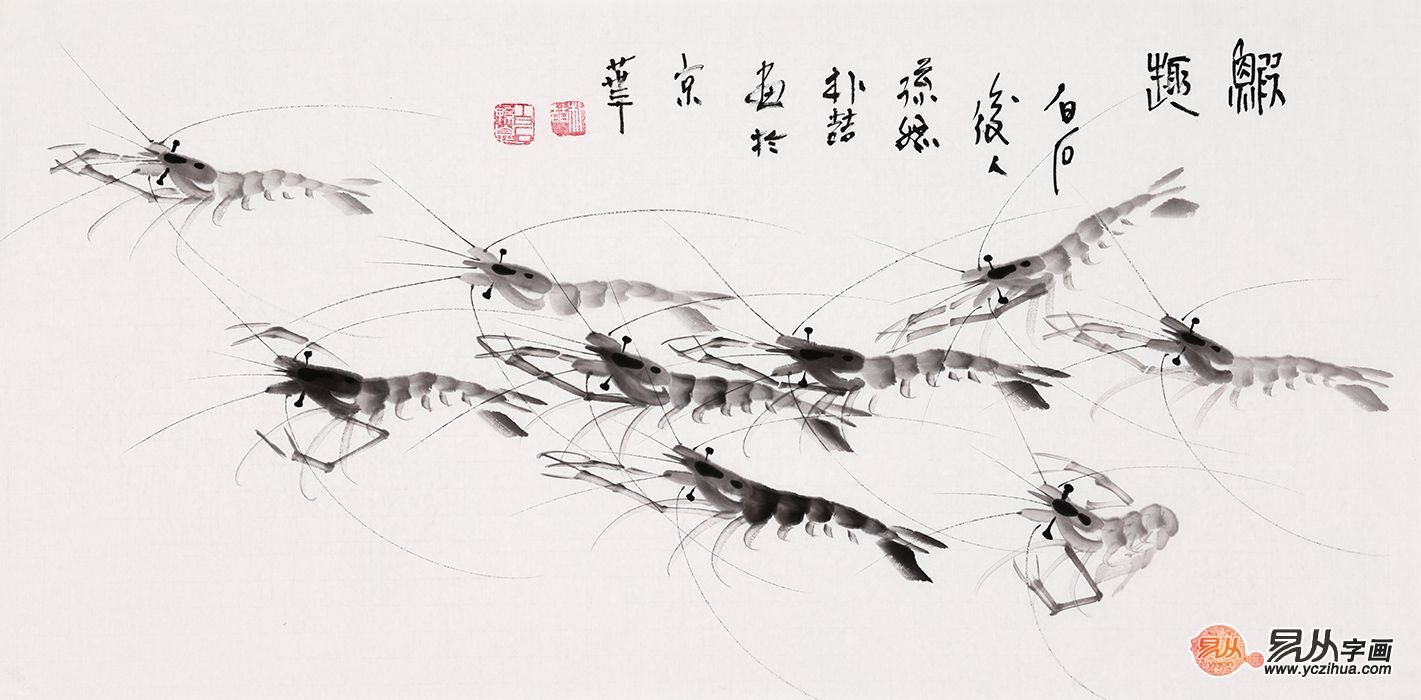 鰕
趣
白石
後人
孫媳
朴喆
画於
京
華
易从字画
yejon
www.yczihua.com